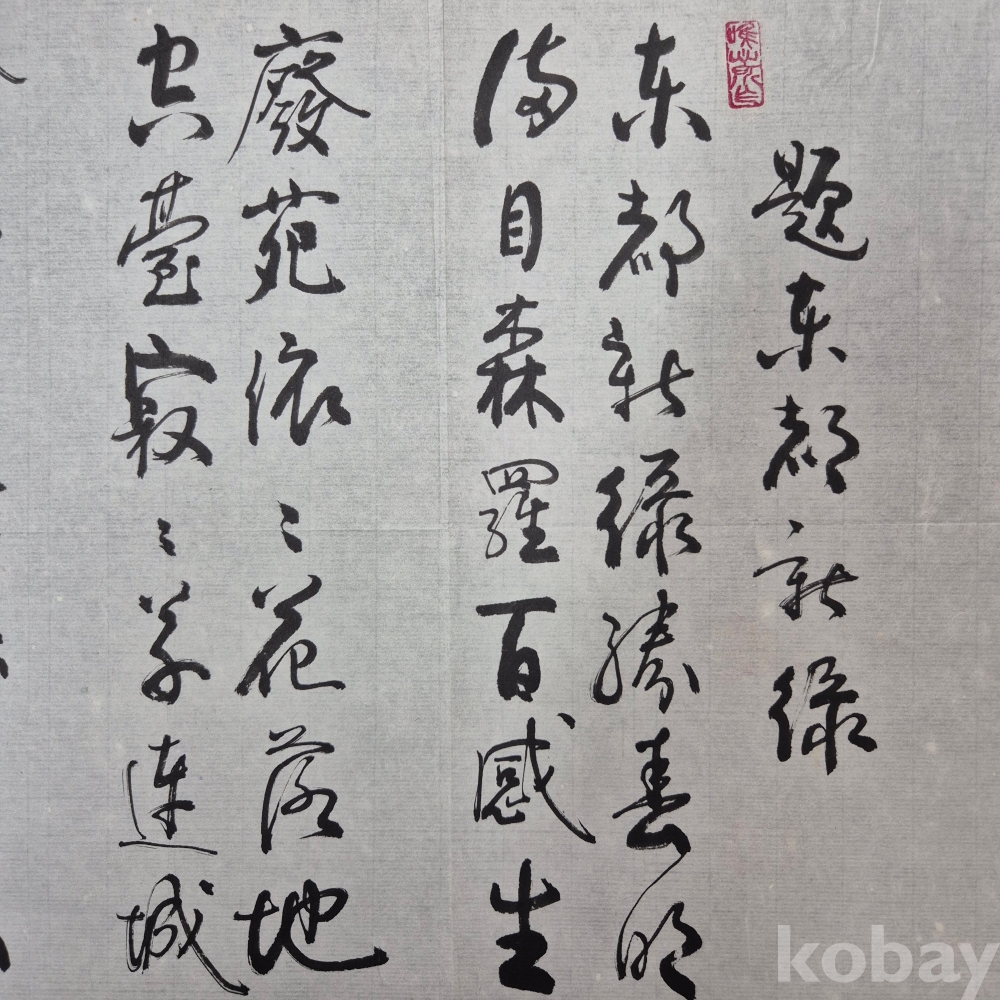 題东都新綠
东都新綠勝春明
滿目森羅百感生
廢苑依〻花落地
空臺寂〻草連城
kobay